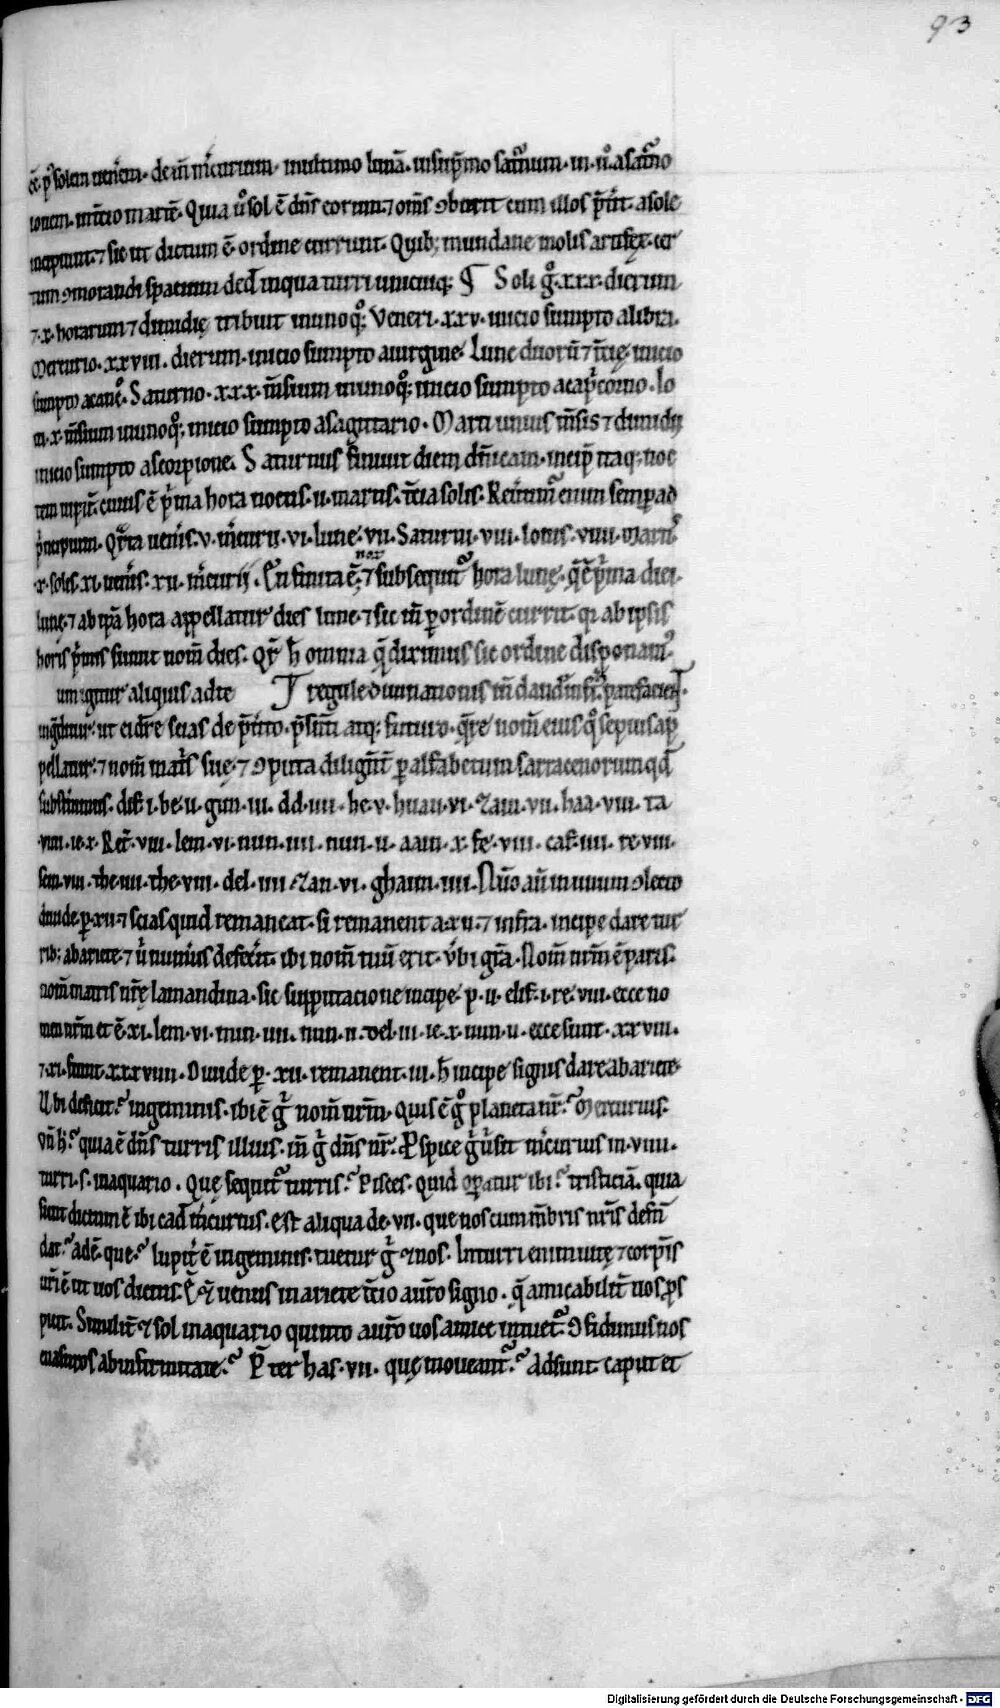 93
ēē p̄ solem uen̄em · de in̄ m̄curium · in ultimo lunā · in sup̄mo saturnum · in · ii̊ · a saturno
iouem · in t̄cio martē · Quia u̾o sol ē dn̄s eorum ⁊ om̄s ꝯburit cum illos p̄iit a sole
incipiunt · ⁊ sic ut dictum ē ordine currunt · Quib; mundane molis artifex cer
tum ꝯmorandi spatium ded̄ in qua turri unicuiq; ¶ Soli gͦ · xxx · dierum
⁊ · x · horarum ⁊ dimidię tribuit in unoqͦ; Veneri · xxv · inicio sumpto a libra ·
Mercurio · xxviii · dierum · inicio sumpto a uirgine · Lune duorū ⁊ t̄cię · inicio
sumpto a cancͦ · Saturno · xxx · m̄sium in unoqͦ; inicio sumpto a cap̄corno · Io
ui · x · m̄sium in unoqͦ; inicio sumpto a sagittario · Marti unius m̄sis ⁊ dimidii
inicio sumpto a scorpione · Saturnus finiuit diem dn̄icam · incip̄ itaq; noc
tem iupit̄ · cuius ē p̄ma hora noctis · ii · martis · t̄cia solis · Reūtimͬ enim semper ad
p̄ncipium · Qͬta uen̄is · v · m̄curii · vi · lune · vii · Saturni · viii · Iouis · viiii · Martis
x · solis · xi · uen̄is · xii · m̄curii · En finita ē nox ⁊ subsequitͬ hora lunę · q̄ ē p̄ma diei ·
lunę · ⁊ ab ip̄a hora appellatur dies lune · ⁊ sic in̄ p̄ ordinē currit · q̄ ab ipsis
horis p̄mis sunt nom̄ dies · Qͬ h̄ omnia q̄ diximus sic ordine disponamͬ
um igitur aliquis ad te It regule diuinationis in̄ dandi inf̄
ingditur · ut ei dic̄re scias de p̄tito · p̄senti atq; futuro · q̄re nom̄ eius qͦ sepius ap
pellatur · ⁊ nom̄ matris suę · ⁊ ꝯputa diligent̄ p̄ alfabetum sarracenorum qd̄
substinimus · elif · i · be · ii · gun · iii · dd · iiii · he · v · huau · vi · zain · vii · haa · viii · ta
viiii · ie · x · Ret · viii · lem · vi · mim · iiii · nun · ii · aain · x · fe · viii · caf · iiii · re · viii ·
sen · viii · the · iiii · the · viii · del · iiii · zan · vi · ghaim · iiii · Num̄o aū in unum ꝯlecto
diuide p̄ · xii · ⁊ scias quid remaneat · si remanent a · xii · ⁊ infra · incipe dare tur
rib; ab ariete · ⁊ u̾ num̄us defec̄it · ibi nom̄ tuū erit · V̾bi grā · Nom̄ nr̄m ē paris ·
nom̄ matris nr̄ę lamandina · sic supputacione incipe · p · ii · elif · i · re · viii · ecce no
men nr̄m et ē xi · lem · vi · mim · iiii · nun · ii · del · iii · ie · x · nun · ii · ecce sunt · xxviii ·
⁊ xi · fiunt · xxxviiii · Diuide p̄ · xii · remanent · iii · h̄ incipe signis dare ab ariete ·
Ubi deficit? in geminis · ibi ē ḡ nom̄ nr̄m · Quis ē gͦ planeta nr̄? Mercurius ·
Vn̄ h̄? quia ē dn̄s turris illius · in̄ ḡ dn̄s nr̄ · Pspice ḡ u̾ sit m̄curius in · viiii ·
turri · s · in aquario · Quę sequitͬ turris? Pisces · Quid operatur ibi? tristiciā · quia
sicut dictum ē ibi cad̄ m̄curius · Est aliqua de · vii · que nos cum m̄bris nr̄is defen̄
dat? adē · que? Iupit̄ ē in geminis · tuetur ḡ ⁊ nos · In turri enim uitę ⁊ corp̄is
nr̄i ē ut uos dicitis · Ē ⁊ uenus in ariete t̄cio aūro signo · q̄ amicabilit̄ nos p̄s
picit · Similit̄ ⁊ sol in aquario quinto aūro uos amice intuetͬ · ꝯfidimus nos
euasuros ab infirmitate? P̄ter has · vii · quę moueantͬ? Adsunt caput et
Digitalisierung gefördert durch die Deutsche Forschungsgemeinschaft - DFG